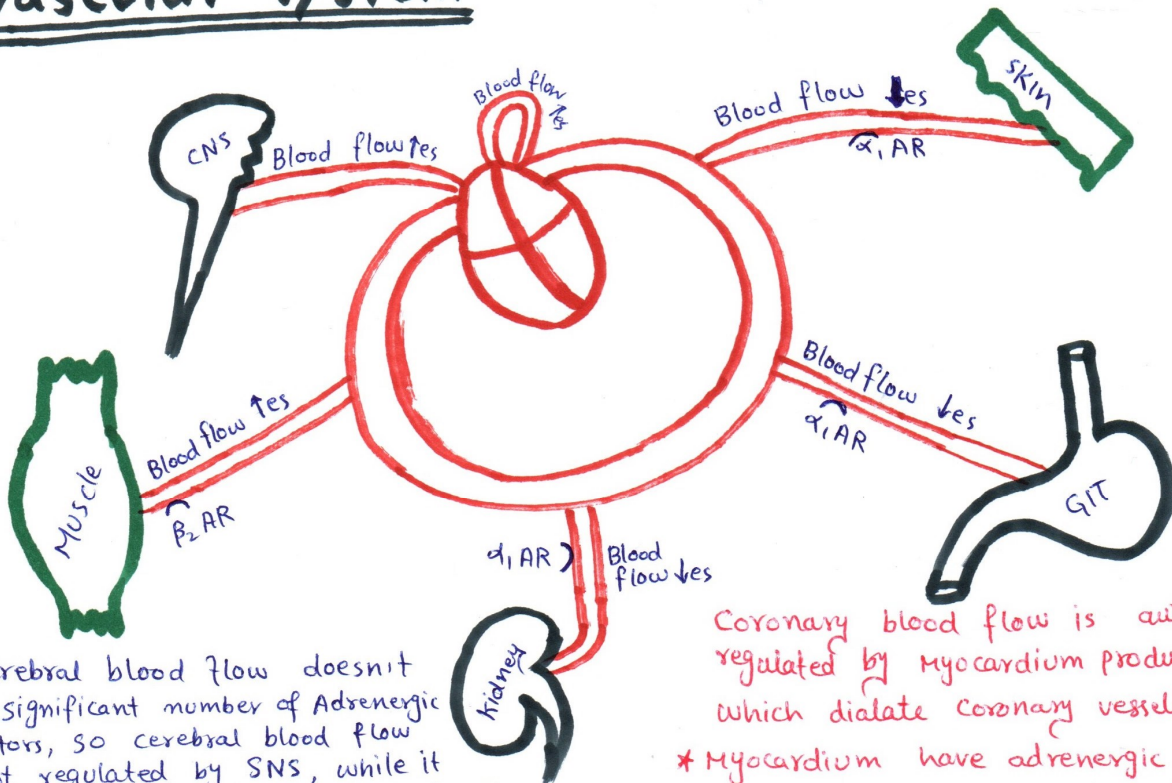 CNS
Blood flow ↑es
Blood flow ↑es
Blood flow ↓es
α1 AR
Skin
Blood flow ↑es
β2 AR
Muscle
Blood flow ↓es
α1 AR
GIT
α1 AR
Blood
flow ↓es
Kidney
rebral blood flow doesn't
significant number of Adrenergic
tors, so cerebral blood flow
t regulated by SNS, while it
Coronary blood flow is au
regulated by Myocardium produ
which dialate Coronary vessel
* Myocardium have adrenergic